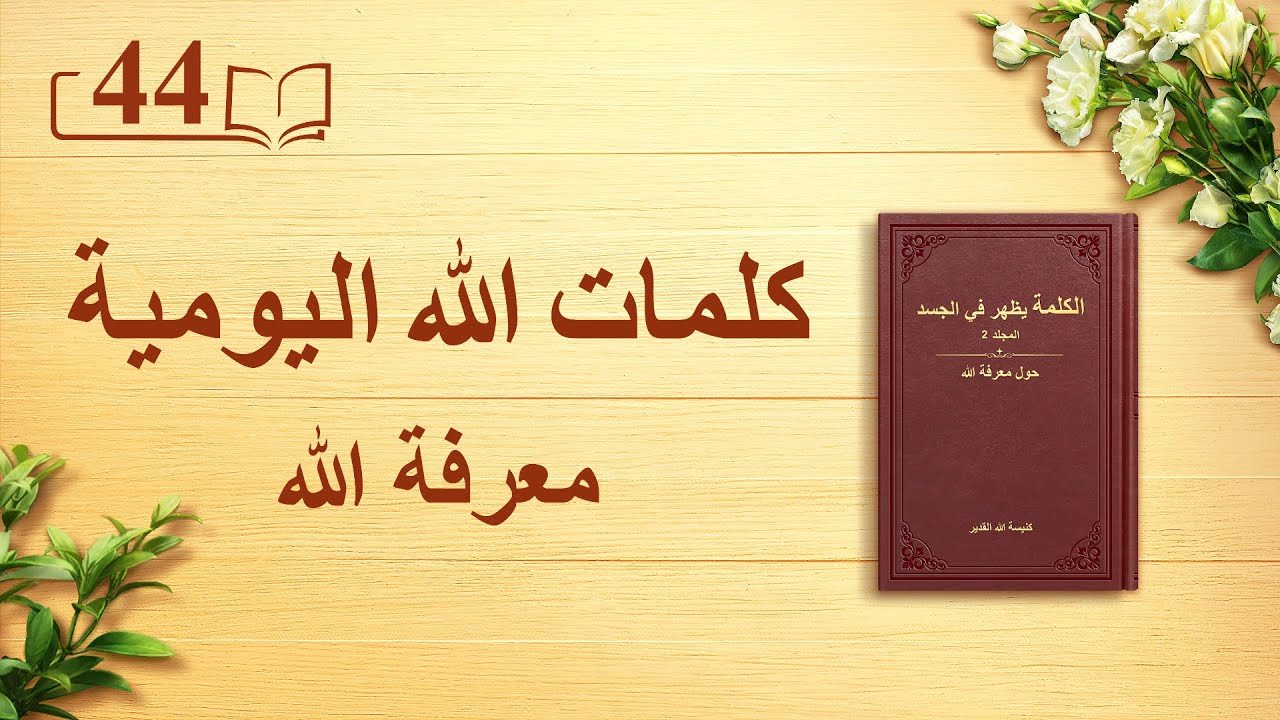 44
كلمات الله اليومية
معرفة الله
الكلمة يظهر في الجسد
المجلد 2
حول معرفة الله
كنيسة الله القدير